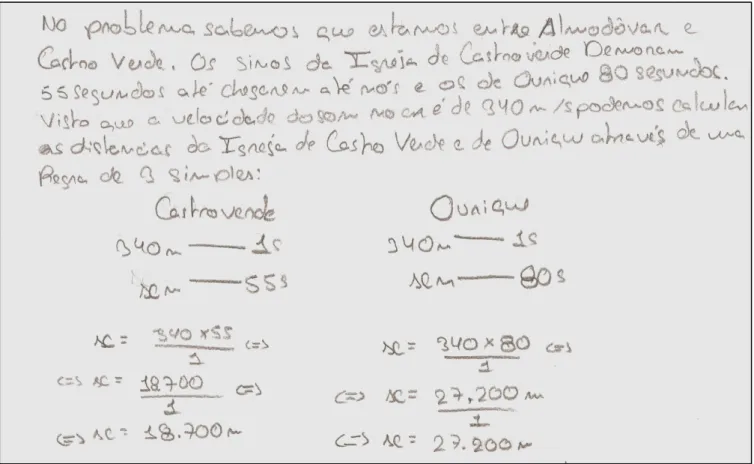 No problema sabemos que estamos entre Almodôvar e
Castro Verde. Os sinos da Igreja de Castro verde Demoram
55 segundos até chegarem até nós e os de Ourique 80 segundos.
Visto que a velocidade do som no ar é de 340 m/s podemos calcular
as distancias da Igreja de Castro Verde e de Ourique através de uma
Regra de 3 simples:
Castro verde Ourique
340m — 1s 340m — 1s
x m — 55s x m — 80s
x = 340 x 55 / 1 <=> x = 340 x 80 / 1 <=>
<=> x = 18700 / 1 <=> <=> x = 27,200 m / 1
<=> x = 18.700 m <=> x = 27.200 m